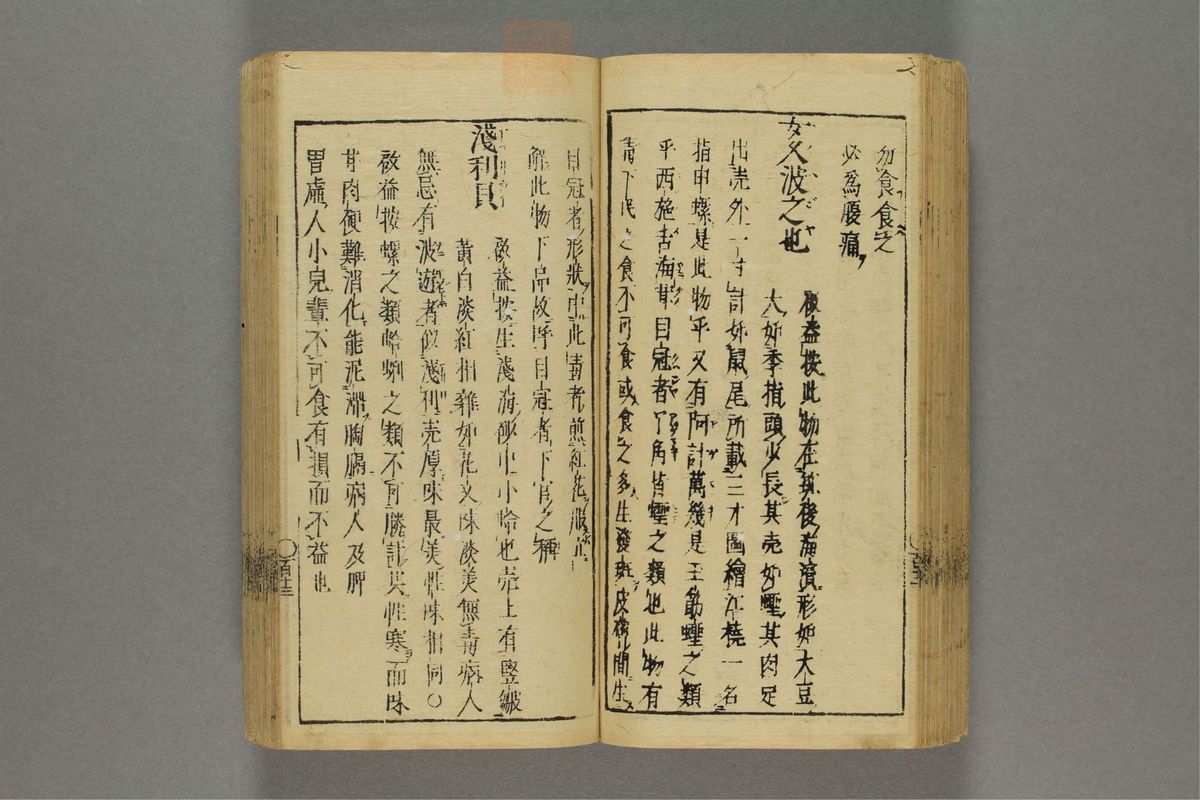 勿食食之
必爲腹痛
女波之也
啟益按此物在筑後海濱形如大豆
大如季指頭少長其壳如蟶其肉足
出壳外一寸計如鼠尾所載三才圖繪江橈一名
指甲螺是此物乎又有阿計萬幾是玉筯蟶之類
乎西施舌海茸目冠者丫角皆蟶之類也此物有
毒下民之食不可食或食之多生發斑皮後間生
目冠者形狀出此毒者煎紅花服正
解此物下品故呼目冠者下官之稱
淺利貝
啟益按生淺海砂中小蛤也壳上有竪皺
黃白淡紅相雜如花文味淡美無毒病人
無忌有波遊者似淺利壳厚味最美性味相同〇
啟益按螺之類蛤蜊之類不可勝計其性寒而味
甘肉硬難消化能泥滯胸膈病人及脾
胃虛人小兒輩不可食有損而不益也
〇百十三